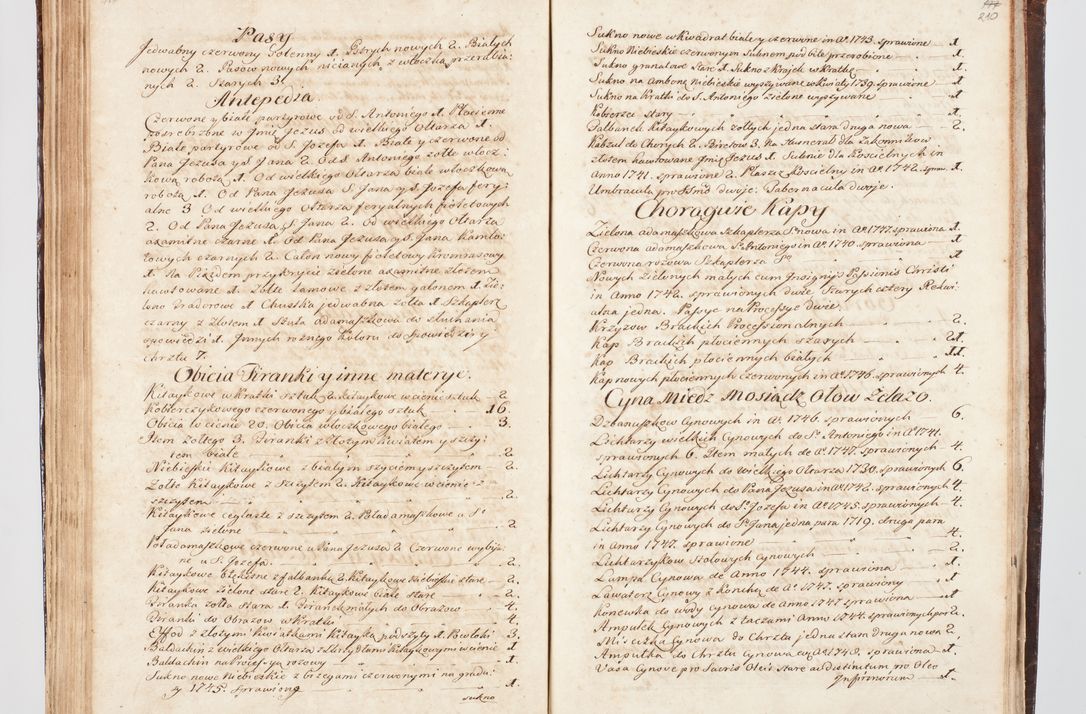 Pasy
Jedwabny czerwony Solenny 1. Szrych nowych 2. Białych
nowych 2. Pasow nowych nicianych z włoczką przerabia:
nych 2. Starych 3.
Antepedia.
Czerwone y białe partyrowe od S. Antoniego 1. Płocienne
posrebrzone w Jmie Jezus od wielkiego Ołtarza 1.
Białe partyrowe od S. Jozefa 1. Białe y czerwone od
Pana Jezusa y S. Jana 2. Od S. Antoniego zołte włocz:
kową robotą 1. Od wielkiego Ołtarza białe włoczkową
robotą 1. Od Pana Jezusa S. Jana y S. Jozefa fery:
alne 3 Od wielkiego Ołtarza feryalnych fioletowych
2. Od Pana Jezusa y S. Jana 2. Od wielkiego Ołtarza
axamitne czarne 1. Od Pana Jezusa y S. Jana Kamlo:
towych czarnych 2. Całon nowy fioletowy
1. Na przykrycie zielone axamitne złotem
hawtowane 1. Zołte lamowe z złotem galonem 1. Zie:
lono 1. Chustka jedwabna zołta 1. Szkaplerz
czarny z złotem 1. Stuła adamaszkowa do słuchania
spowiedzi 1. Jnnych roznego koloru do spowiedzi y
chrztu 7.
Obicia Firanki y inne materye.
Kitaykowe w kratki sztuk 2. Kitaykowe w cienie sztuk 2.
Kobierczykowego czerwonego y białego sztuk 16
Obicia w cienie 20. Obicia włoczkowego białego 3.
Jtem zołtego 3. Firanki z złotym kwiatem y szczy:
tem białe 2.
Niebieskie Kitaykowe z białym szyciem y szczytem 2.
Zołte Kitaykowe z szczytem 2. Kitaykowe w cienie z
szczytem 2.
Kitaykowe ceglaste z szczytem 2. Poładamaszkowe u S.
Jana zielone 2
Poładamaszkowe czerwone u Pana Jezusa 2. Czerwone wybija:
ne u S. Jozefa
Kitaykowe błękitne z falbanką 2. Kitaykowe Niebieskie stare 2.
Kitaykowe zielone stare 2. Kitaykowe białe stare 2.
Firanka zołta stara 1. Firanek małych do Obrazow 4.
Firanki do Obrazow w kratki 4.
Effod z złotymi kwiatkami Kitayką podszyty 1. 3.
Baldachin z wielkiego Ołtarza z Kitaykowymi w cienie 1
Baldachin na Processyą rozowy 1.
Sukno nowe Niebieskie z brzegami czerwonymi na gradu:
sy 1745. sprawione 1.
sukno
210
Sukno nowe w kwadrat białe y czerwone in Aº 1743. sprawione 1
Sukno Niebieskie czerwonym suknem podbite przerobione 1
Sukno granatowe stare 1 Sukno z krajek w kratkę 1
Sukno na Ambonę Niebieskie wyszywane w kwiaty 1739. sprawione 1
Sukno na Kratki do S. Antoniego zielone wyszywane 1
Kobierzec stary 1.
Falbanek Kitaykowych zołtych jedna stara druga nowa 2.
Kapzul do Chorych 2. Biretow 3. Na dla Zakonnikow
złotem hawtowane Jmie Jezus 1. Suknie dla Koscielnych in
Anno 1741. sprawione 2. Płaszcz Koscielny in Aº 1742. spraw. 1
Umbracula pro SSmo dwoje. Tabernacula dwoje.
Chorągwie Kapy
Zielona adamaszkowa Szkaplerza S. nowa in Aº 1747. sprawiona 1
Czerwona adamaszkowa Sº Antoniego in Aº 1740. sprawiona 1
Czerwona rozowa Szkaplerza Sº 1
Nowych Zielonych małych cum Jnsignijs Passionis Christi
in Anno 1742. sprawionych dwie. Starych cztery Rekwi:
alna jedna. Passye na Processye dwie.
Krzyzow Brackich Processionalnych 2.
Kap Brackich płociennych szarych 21.
Kap Brackich płociennych białych 11.
Kap nowych płociennych czerwonych in Aº 1746. sprawionych 4.
Cyna Miedz Mosiądz Ołow Zelazo.
Dzbanuszkow Cynowych in Aº. 1746. sprawionych 6.
Lichtarzy wielkich Cynowych do Sº Antoniego in Aº 1741.
sprawionych 6. Jtem małych de Aº. 1747. sprawionych 4.
Lichtarzy Cynowych do Wielkiego Ołtarza 1730. sprawionych 6.
Lichtarzy Cynowych do Pana Jezusa in Aº 1742. sprawionych 4.
Lichtarzy Cynowych do Sº. Jozefa in Aº 1745. sprawionych 4.
Lichtarzy Cynowych do Sº Jana jedna para 1719. druga para
in Anno 1747. sprawione 4.
Lichtarzykow Stołowych Cynowych 2.
Lampa Cynowa de Anno 1744. sprawiona 1.
Lawaterz Cynowy z Konchą de Aº. 1747. sprawiony 1
Konewka do wody Cynowa de Anno 1747. sprawiona 1
Ampułek Cynowych z taczami Anni 1744. sprawionych par 2.
Miseczka Cynowa do Chrztu jedna stara druga nowa 2.
Ampułka do Chrztu Cynowa in Aº 1748. sprawiona 1.
Vasa Cynove pro Sacris Oleis stare ad distinctum no Oleo
Jnfirmorum 1.